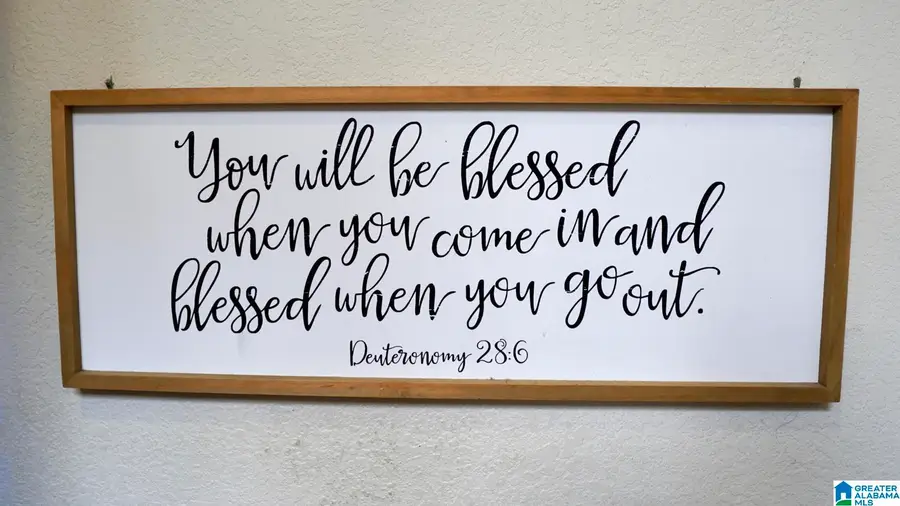 You will be blessed
when you come in and
blessed when you go out.
Deuteronomy 28:6
GREATER
ALABAMA
MLS